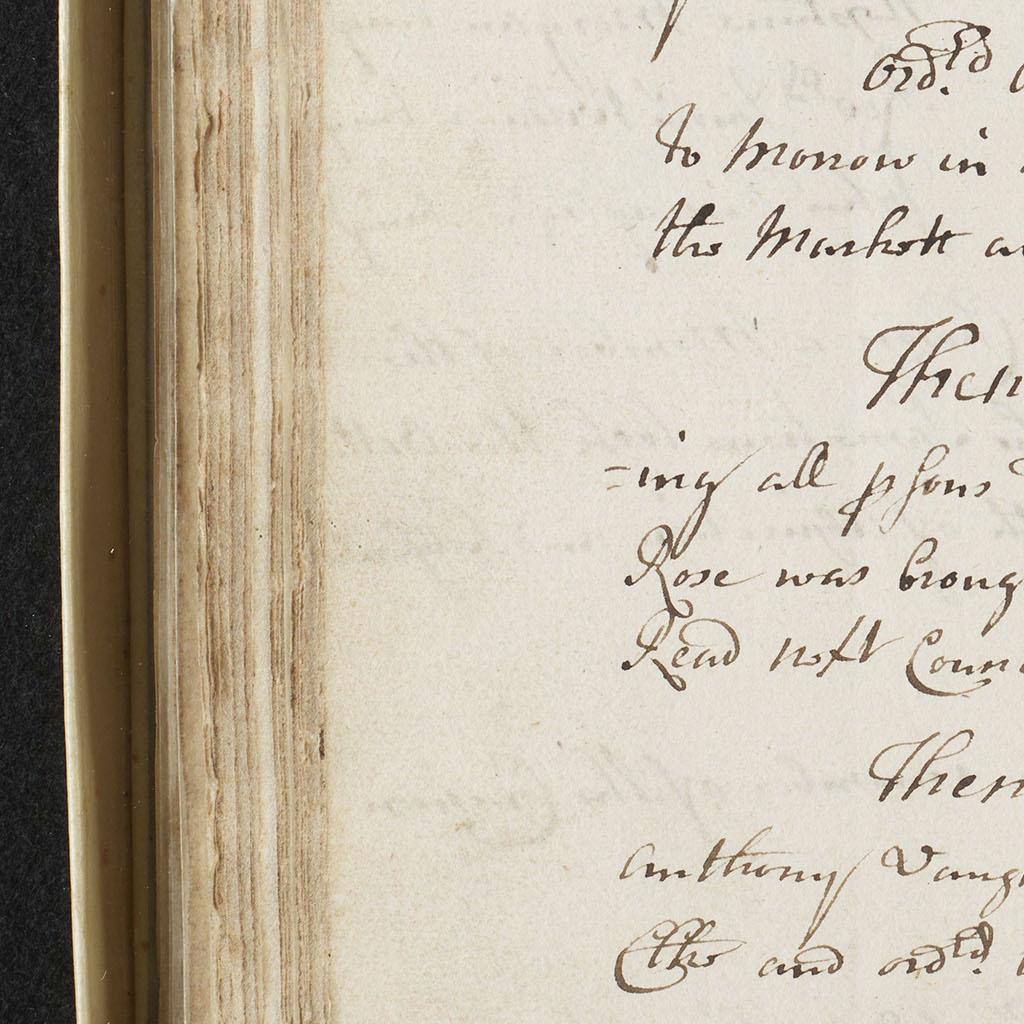 Ord.rd
to Morrow in
the Markett a
Then
=ing all psons
Rose was broug
Read noft Coun
Then
Anthony Vaug
Ctte and ordrd.